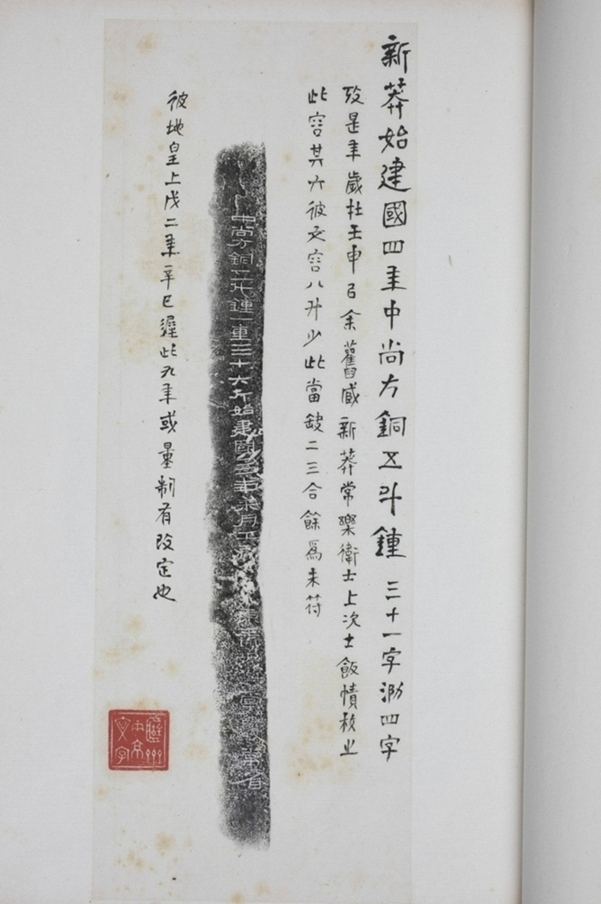 新莽始建國四年中尚方銅五斗鍾 三十一字泐四字
攷是年歲杜壬申㠯余舊臧新莽常樂衛士上次士飯幘校之
此容其六彼文容八升少此當缺二三合餘爲未符
中尚方銅五斗鍾一重三十六斤始建國四年
彼地皇上戊二年辛巳遲此九年或量制有改定也